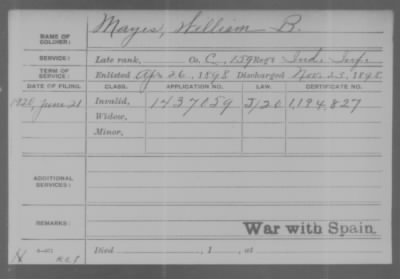 NAME OF SOLDIER: Mayes, William B.
SERVICE: Late rank, Co. C, 159 Reg't Ind. Inf.
TERM OF SERVICE: Enlisted Apr 26, 1898 Discharged Nov. 23, 1898
DATE OF FILING. CLASS. APPLICATION NO. LAW. CERTIFICATE NO.
1920, June 21 Invalid, 1437059 J/20 1,194,827
Widow,
Minor,
ADDITIONAL SERVICES:
REMARKS: War with Spain.
Died , 1 , at